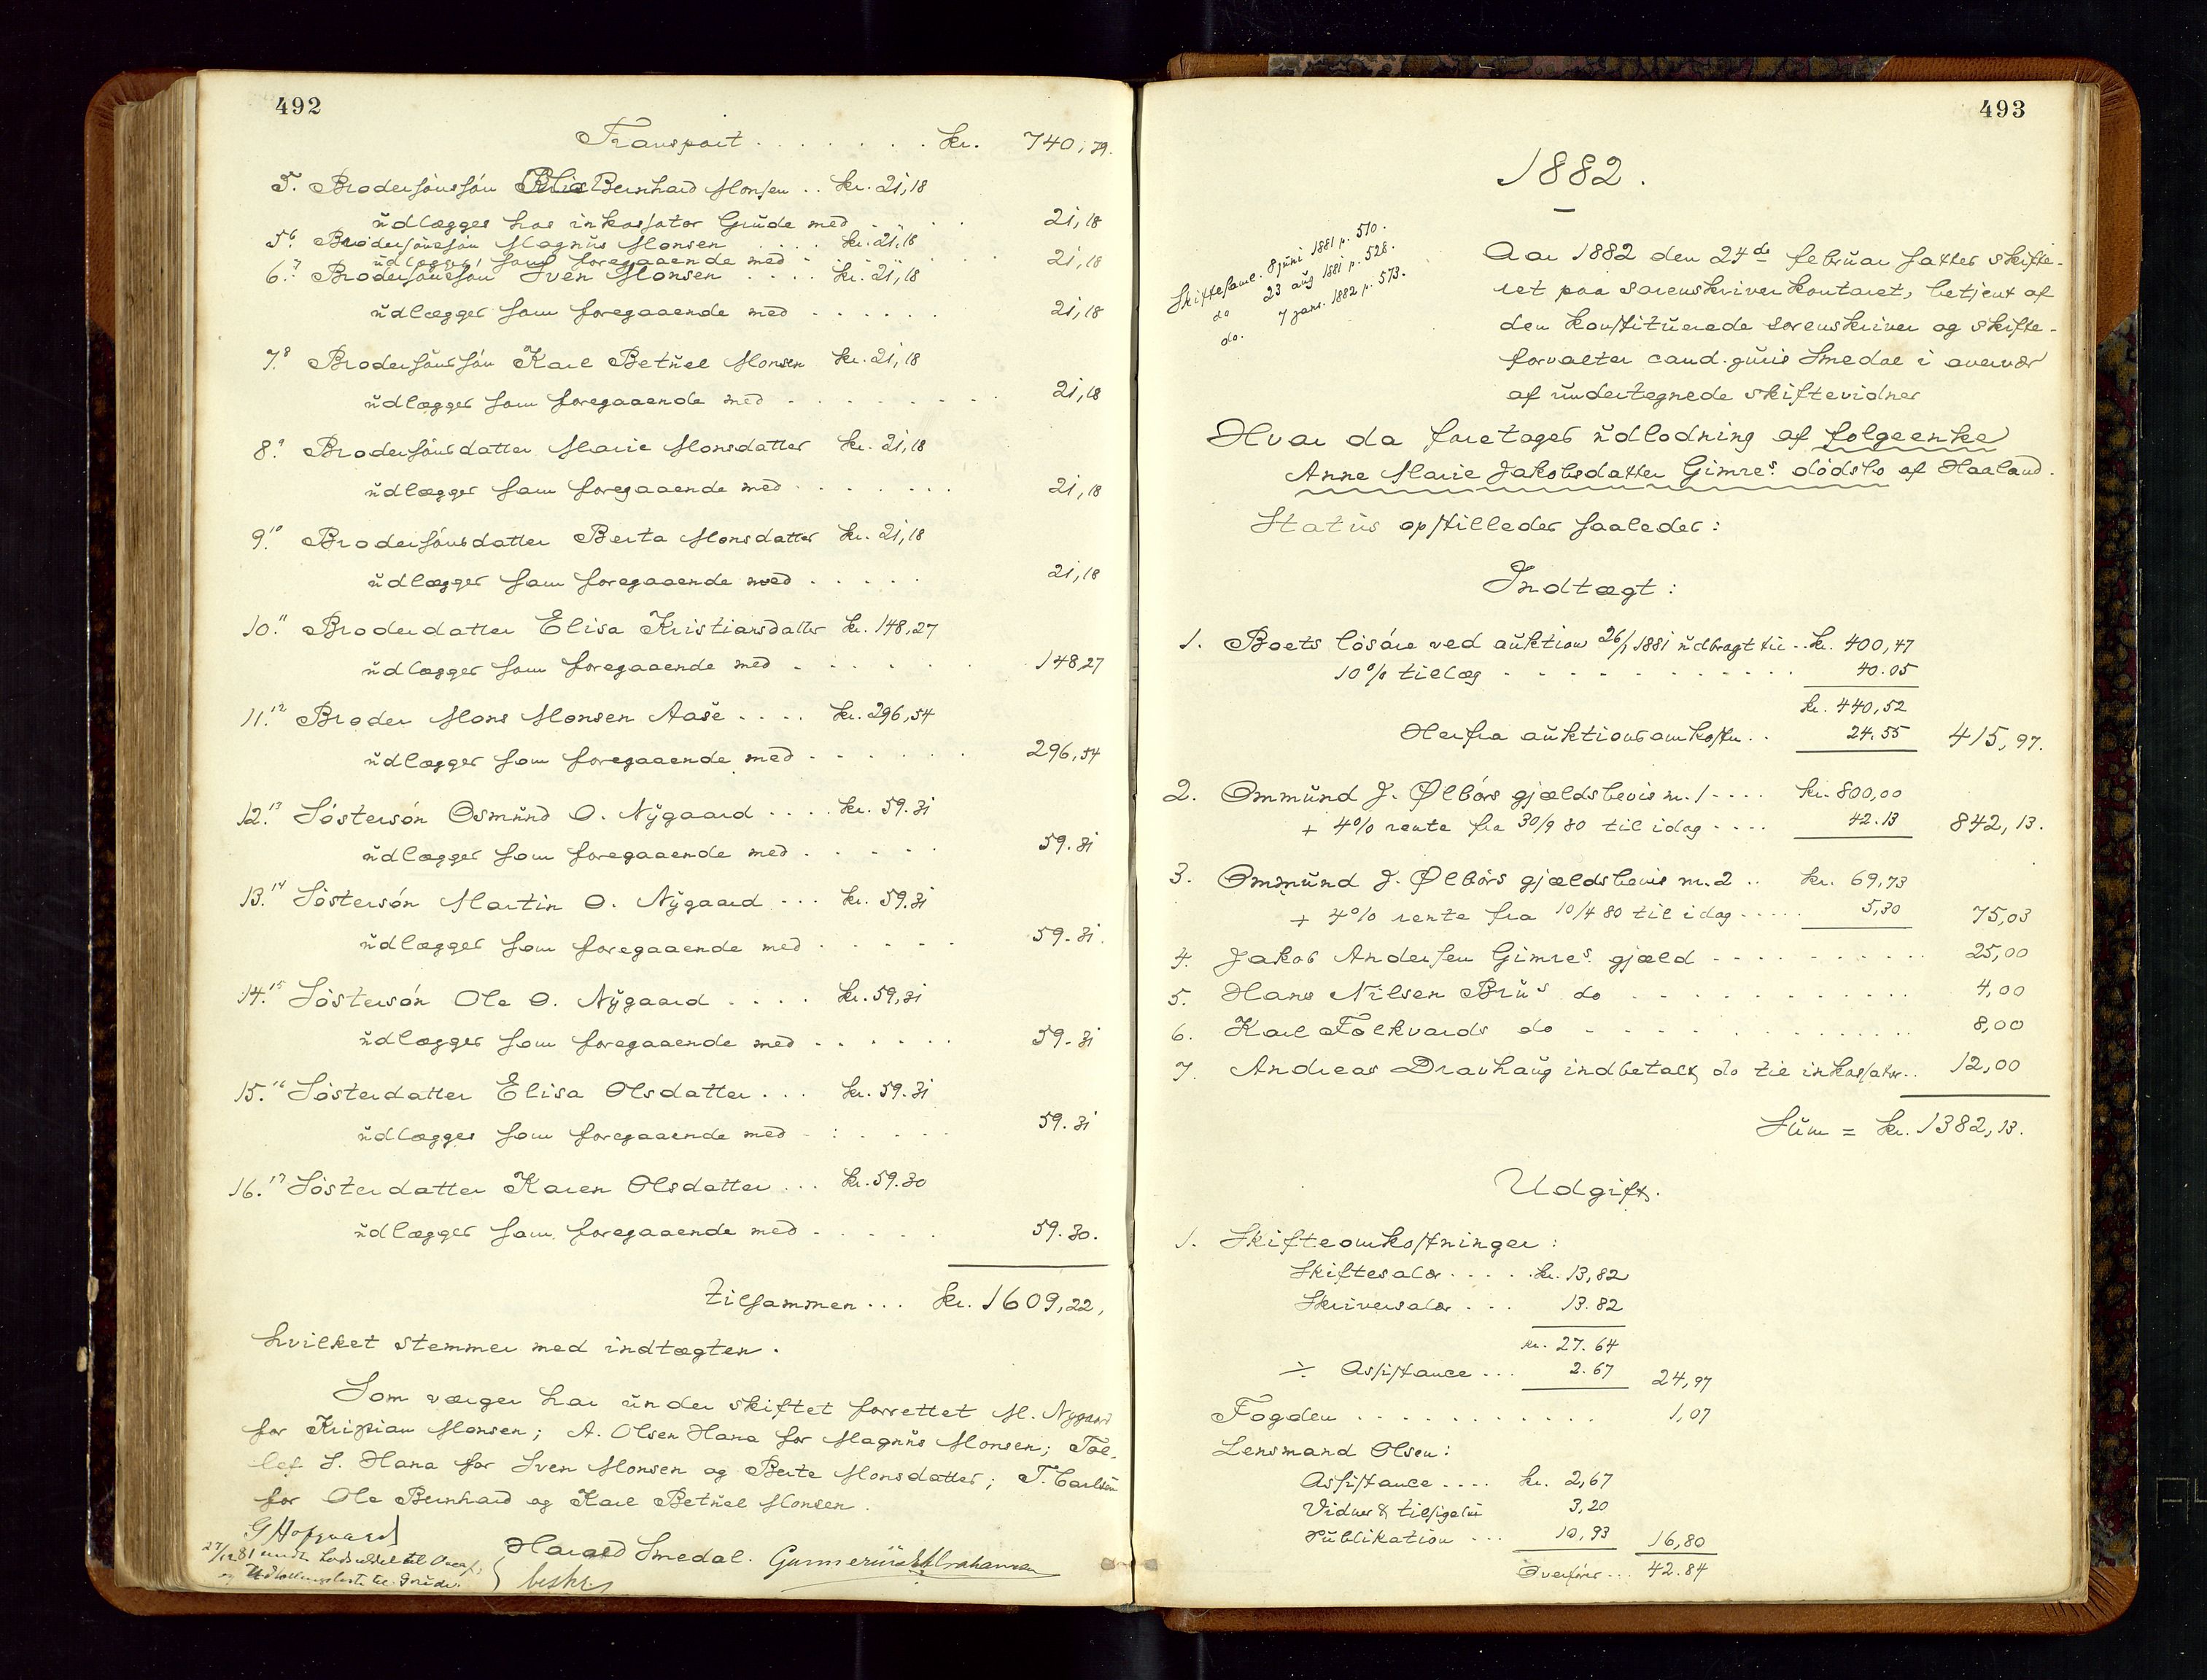 492
Transport . . . . . . . kr. 740,79.
5. Brodersönssön Bernhard Monsen .. kr. 21,18
üdlægges hos inkassator Grüde med . . . 21,18
5.6 Brodersönssön Magnüs Monsen . . . . kr. 21,18
üdlægges som foregaaende med . . . 21,18
6.7 Brodersönssön Sven Monsen . . . . kr. 21,18
üdlægges som foregaaende med . . . . . . 21,18
7.8 Brodersönssön Karl Betüel Monsen kr. 21,18
üdlægges som foregaaende med . . . . . . . . 21,18
8.9 Brodersönsdatter Marie Monsdatter kr. 21,18
üdlægges som foregaaende med . . . . . . . 21,18
9.10 Brodersönsdatter Berta Monsdatter kr. 21,18
üdlægges som foregaaende med . . . . . 21,18
10.11 Broderdatter Elisa Kristiansdatter kr. 148,27
üdlægges som foregaaende med . . . . . . 148,27
11.12 Broder Mons Monsen Aase . . . . kr. 296,54
üdlægges som foregaaende med . . . . . . 296,54
12.13 Söstersön Osmünd O. Nÿgaard . . . . kr. 59.31
üdlægges som foregaaende med . . . . . 59.31
13.14 Söstersön Martin O. Nÿgaard . . . kr. 59.31
üdlægges som foregaaende med . . . . . 59.31.
14.15 Söstersön Ole O. Nÿgaard . . . . kr. 59,31
üdlægges som foregaaende med . . . . . . 59.31
15.16 Sösterdatter Elisa Olsdatter . . . kr. 59.31
üdlægges som foregaaende med . . . . . 59.31
16.17 Sösterdatter Karen Olsdatter . . . kr. 59.30
üdlægges som foregaaende med . . . . . 59.30.
tilsammen . . . kr. 1609,22,
hvilket stemmer med indtægten.
Som værger har ünder skiftet forrettet M. Nygaard
for Kristian Monsen; A. Olsen Hana for Magnüs Monsen; Tol-
lef S. Hana for Sven Monsen og Berte Monsdatter; T. Carlsen
for Ole Bernhard og Karl Betüel Monsen.
G Hofgaard
Harald Smedal. Gunnerius Abrahamsen
27/12 81 og til
beskr.
493
1882.
Skiftesaml. 8 juni 1881 p. 510.
do 23 aüg 1881 p. 528.
do. 7 janr. 1882 p. 573.
Aar 1882 den 24de februar sattes skifte-
ret paa sorenskriverkontoret, betjent af
den konstituerede sorenskriver og skifte-
forvalter cand. juris Smedal i overvær
af ündertegnede skiftevidner
Hvor da foretoges üdlodning af folgeenke
Anne Marie Jakobsdatter Gimres dödsbo af Haaland.
Status opstilledes saaledes:
Indtægt:
1. Boets lösöre ved aüktion 26/1 1881 üdbragt til .. kr. 400,47
10% tillæg . . . . . . . . . . . 40.05
kr. 440,52
Herfra aüktionsomkostn. . . 24.55 415,97.
2. Ommünd J. Ølbörs gjældsbevis nr. 1 . . . . kr. 800,00
+ 4% rente fra 30/9 80 til idag . . . . 42.13 842,13.
3. Ommünd J. Ølbörs gjældsbevis nr. 2 .. kr. 69,73
+ 4% rente fra 10/4 80 til idag . . . . . 5,30 75,03
4. Jakob Andersen Gimres gjæld . . . . . . . . . . 25,00
5. Hans Nilsen Brüs do . . . . . . . . . . . . 4,00
6. Karl Folkvards do . . . . . . . . . . . . . 8,00
7. Andreas Dravhaüg indbetalt do til inkassator .. 12,00
Süm = kr. 1382,13.
Udgift.
1. Skifteomkostninger:
Skiftesalær . . . . . kr. 13,82
Skriversalær . . . 13.82
kr. 27.64
÷ Assistance . . . 2.67 24,97
Fogden . . . . . . . . . . . 1,07
Lensmand Olsen:
Assistance . . . . kr. 2,67
Vidner & tilsigelse 3,20
Püblikation . . . 10,93 16,80
Overföres . . . 42.84